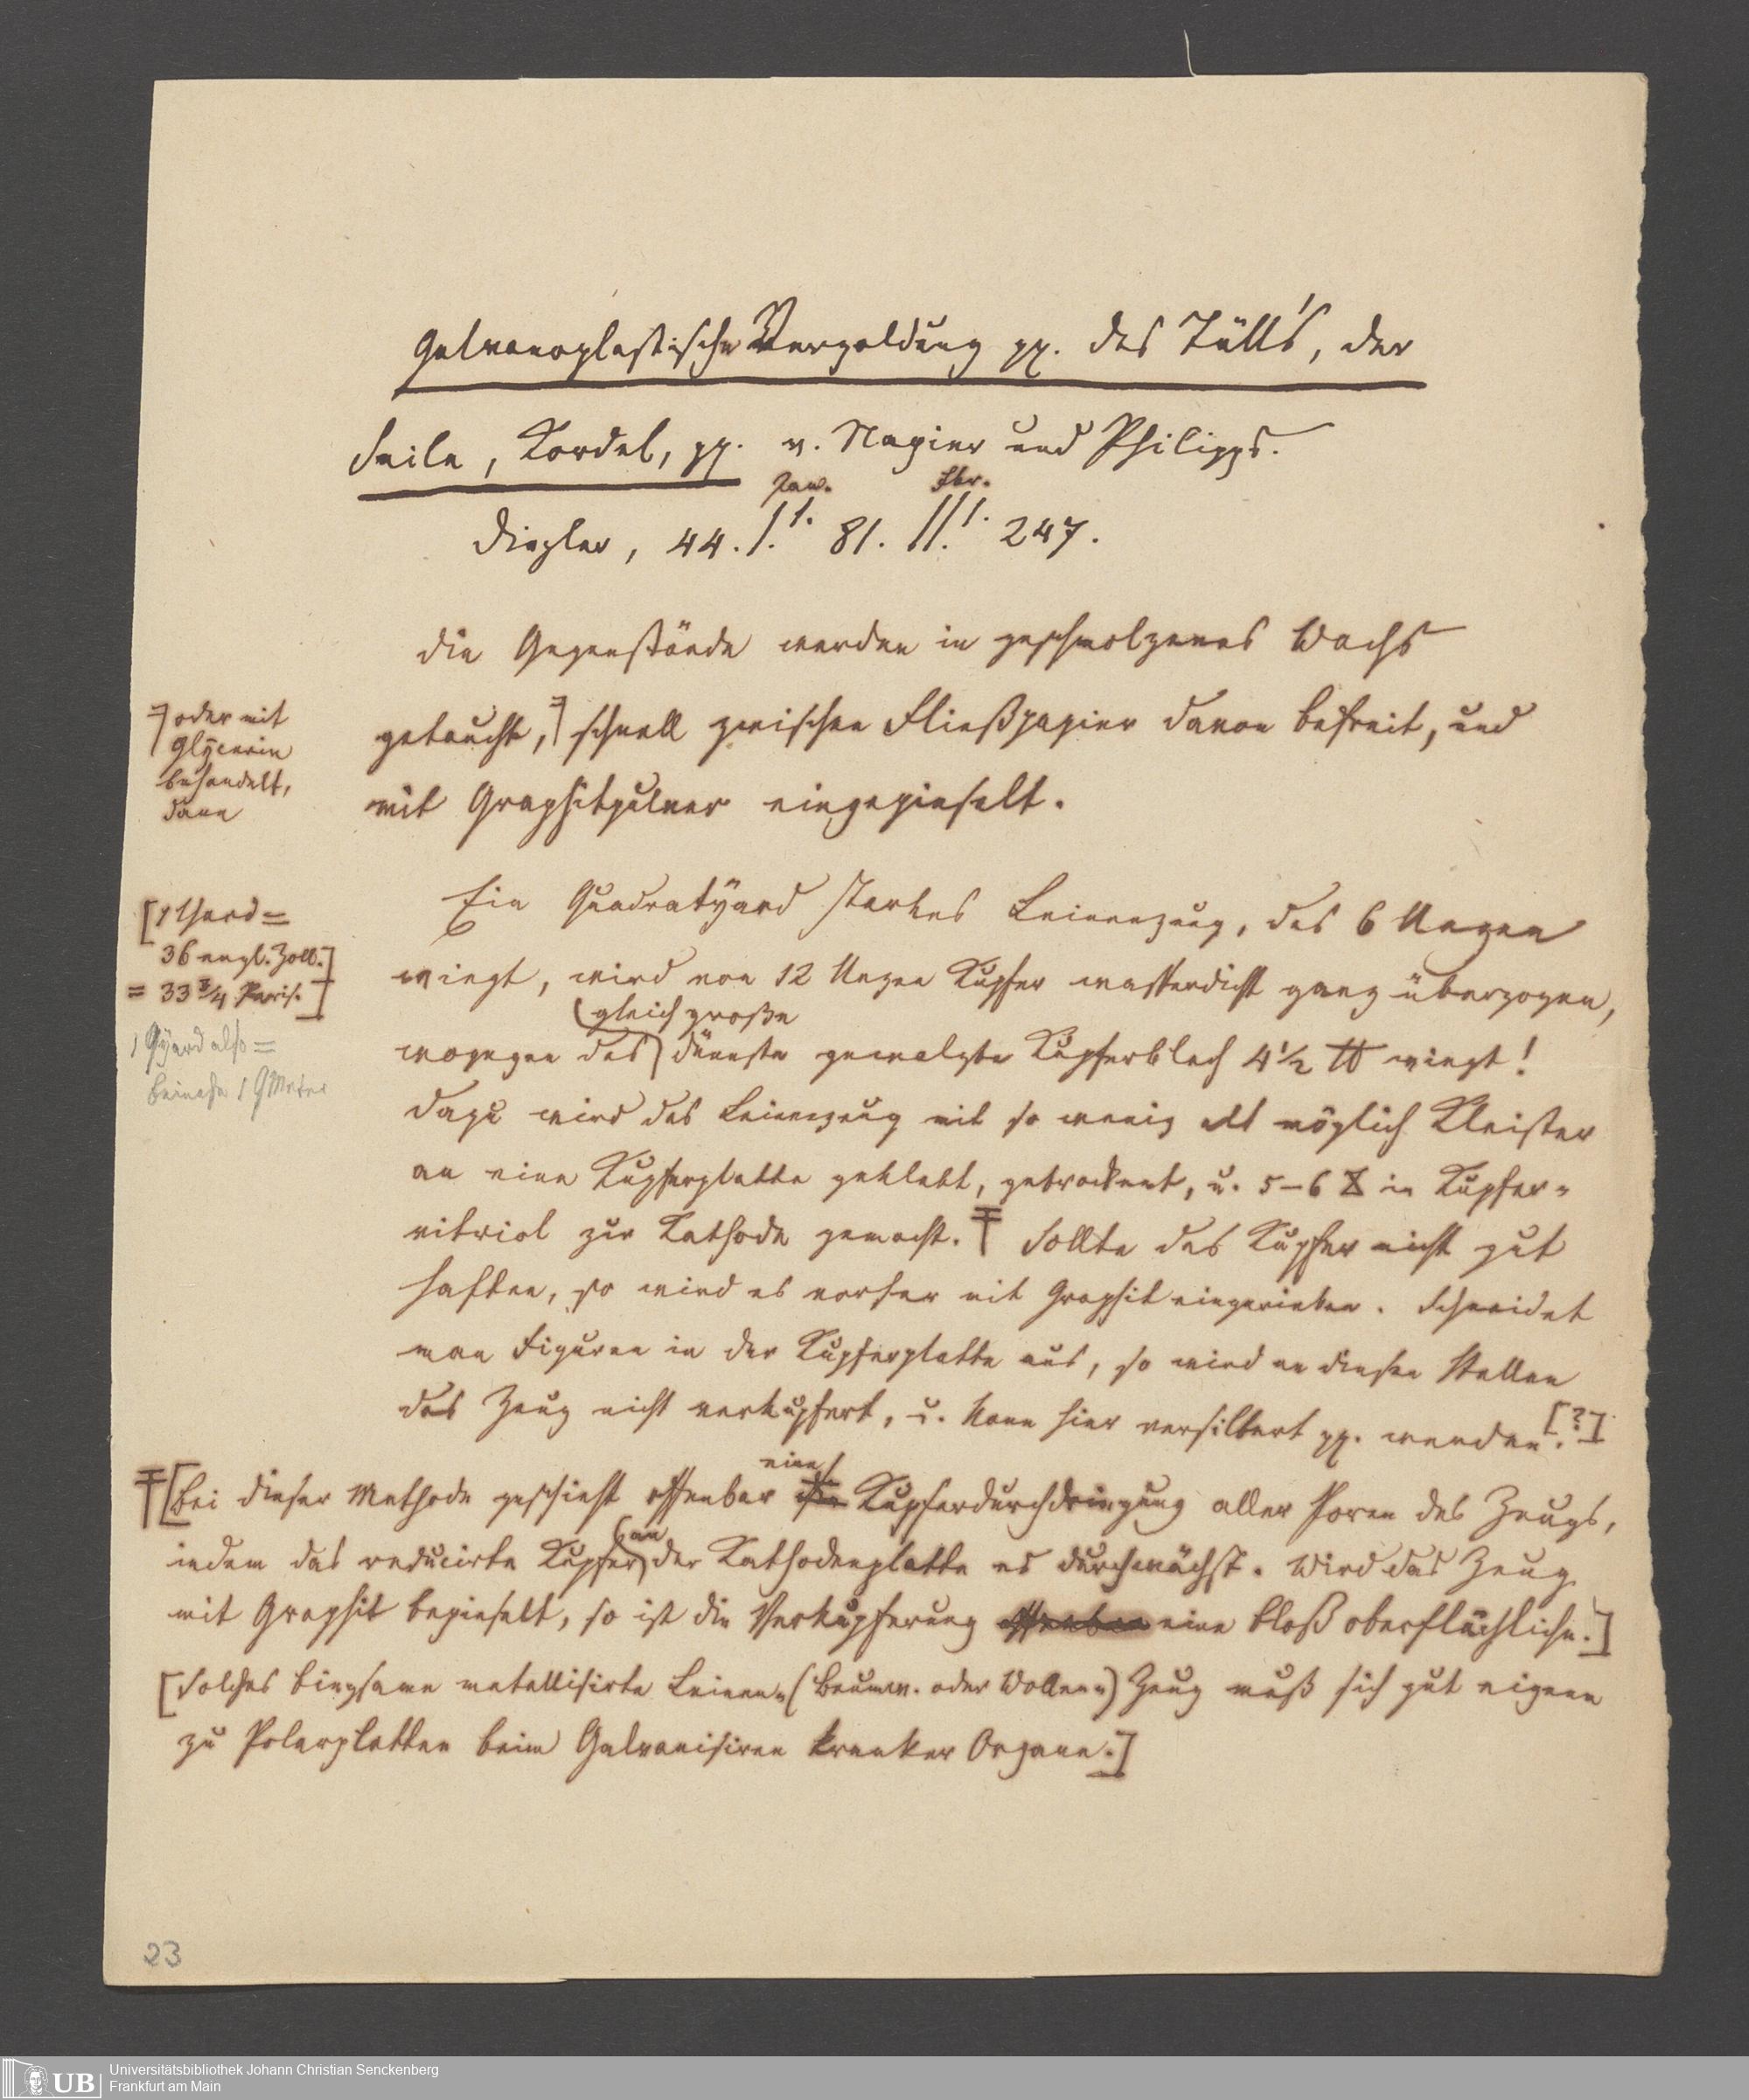 Galvanoplastische Vergoldung pp. des Tülls', der
Seile, Kordel, pp. v. Napier und Philipps.
Jan. Fbr.
Dingler, 44. I. 1. 81. III. 1. 247.
Die Gegenstände werden in geschmolzenes Wachs
getaucht, schnell zwischen Fließpapier davon befreit, und
mit Graphitpulver eingepinselt.
oder mit
Glÿcerin
behandelt,
dann
Ein Quadratÿard starkes Leinenzeug, das 6 Unzen
wiegt, wird von 12 Unzen Kupfer wasserdicht ganz überzogen,
gleich große
wogegen das dünnste gewalzte Kupferblech 4 1/2 ℔ wiegt!
Dazu wird das Leinenzeug mit so wenig als möglich Kleister
an eine Kupferplatte geklebt, getrocknet, u. 5–6 in Kupfer-
vitriol zur Kathode gemacht. Sollte das Kupfer nicht gut
haften, so wird es vorher mit Graphit eingerieben. Schneidet
man Figuren in der Kupferplatte aus, so wird an diesen Stellen
das Zeug nicht verkupfert, u. kann hier versilbert pp. werden. [?]
[1 Yard =
36 engl. Zoll.]
= 33 3/4 Paris.]
1 Qÿard also =
beinahe 1 QMeter
[Bei dieser Methode geschieht offenbar eine Kupferdurchdringung aller Poren des Zeugs,
indem das reducirte Kupfer an der Kathodenplatte es durchwächst. Wird das Zeug
mit Graphit bepinselt, so ist die Verkupferung offenbar eine bloß oberflächliche.]
[Solches biegsame metallisirte Leinen- (Baumw. oder Wollen-) Zeug muß sich gut eignen
zu Polarplatten beim Galvanisiren kranker Organe.]
23
UB
Universitätsbibliothek Johann Christian Senckenberg
Frankfurt am Main